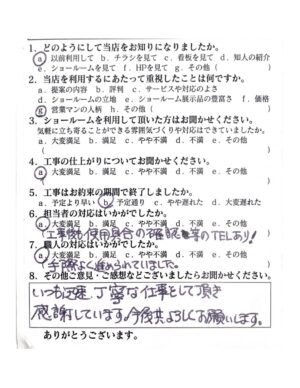 1. どのようにして当店をお知りになりましたか。
a 以前利用して b. チラシを見て c. 看板を見て d. 知人の紹介
e. ショールームを見て f. HPを見て g. その他（ ）
2. 当店を利用するにあたって重視したことは何ですか。
a. 提案の内容 b. 評判 c. サービスや対応のよさ
d. ショールームの立地 e. ショールーム展示品の豊富さ f. 価格
g 営業マンの人柄 h. その他（ ）
3. ショールームを利用して頂いた方はお聞かせください。
気軽に立ち寄ることができる雰囲気づくりや対応はできていましたか。
a. 大変満足 b. 満足 c. やや不満 d. 不満 e. その他
4. 工事の仕上がりについてお聞かせください。
a 大変満足 b. 満足 c. やや不満 d. 不満 e. その他
5. 工事はお約束の期間で終了しましたか。
a. 予定より早い b 予定通り c. やや遅れた d. 大変遅れた
6. 担当者の対応はいかがでしたか。
a 大変満足 b. 満足 c. やや不満 d. 不満 e. その他
工事後も使用具合の確認等のTELあり!
7. 職人の対応はいかがでしたか。
a 大変満足 b. 満足 c. やや不満 d. 不満 e. その他
手際よく進められていました。
8. その他ご意見・ご感想などございましたらお聞かせください。
いつも迅速、丁寧な仕事をして頂き
感謝しています。今後共よろしくお願いします。
ありがとうございます。